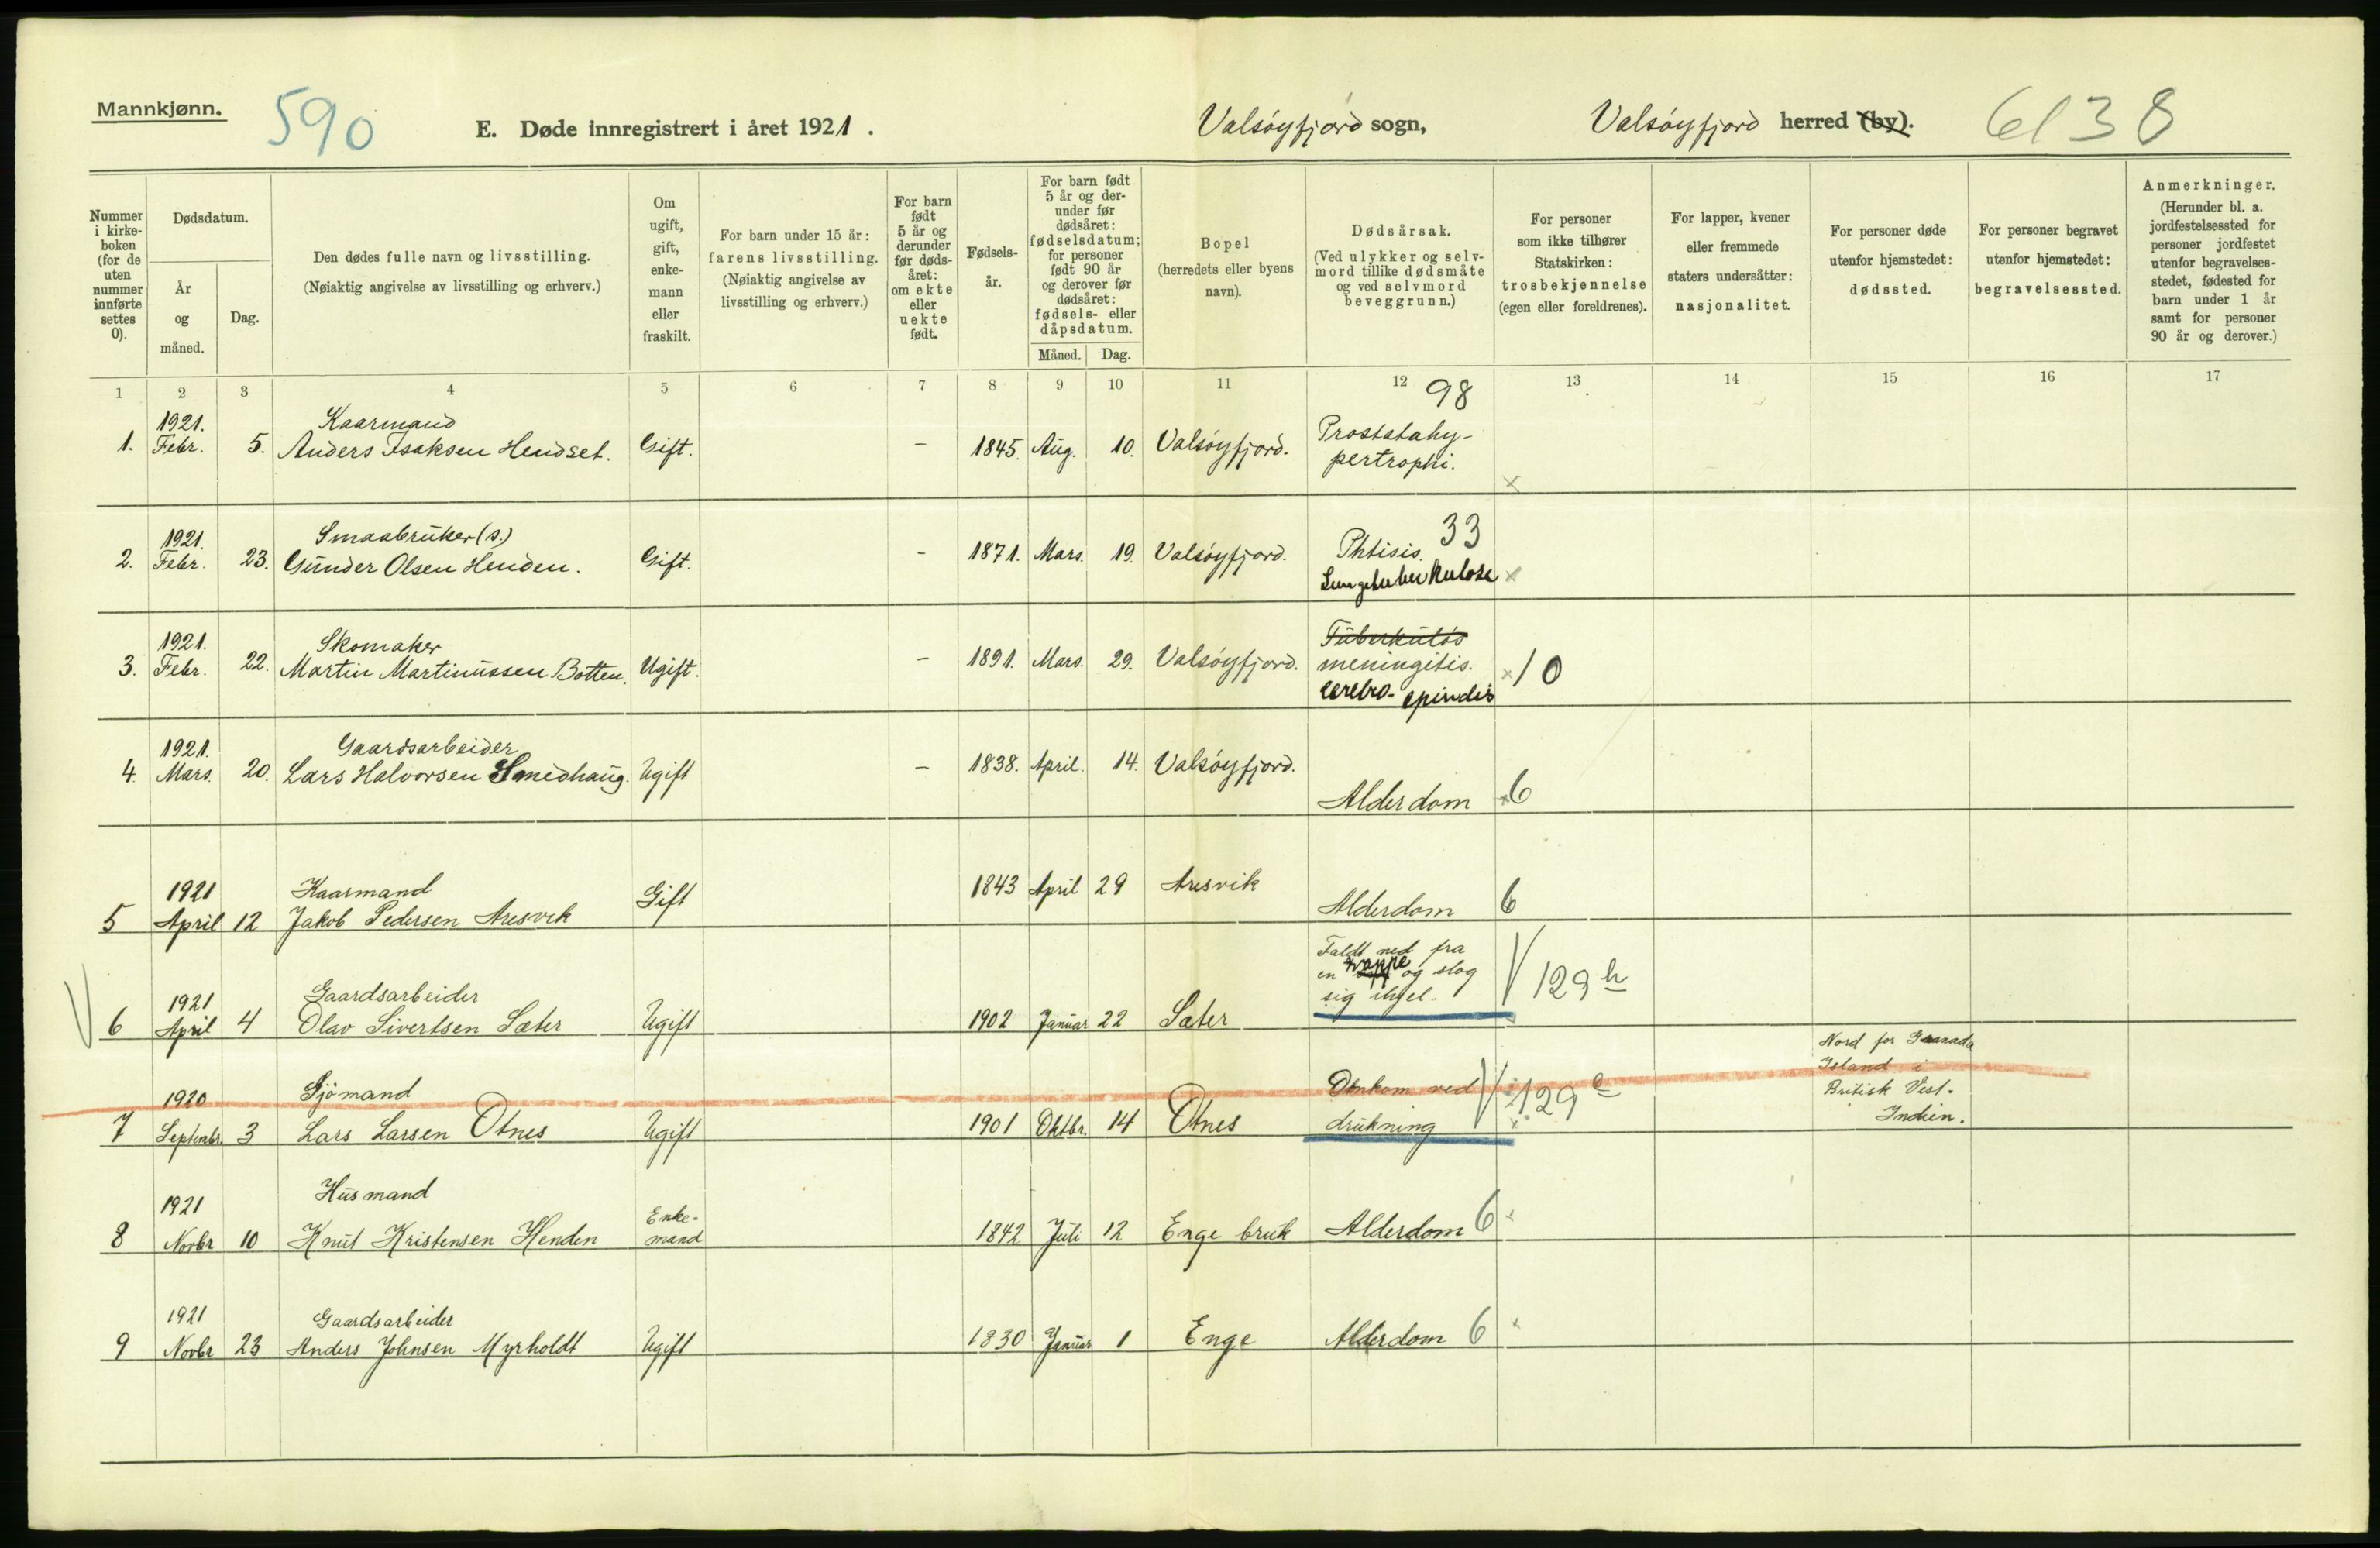 Mannkjønn.
590
E. Døde innregistrert i året 1921.
Valsøyfjord sogn,
Valsøyfjord herred (by).
6138
Nummer i kirkeboken (for de uten nummer innførte settes 0).
Dødsdatum.
År og måned.
Dag.
Den dødes fulle navn og livsstilling.
(Nøiaktig angivelse av livsstilling og erhverv.)
Om ugift, gift, enkemann eller fraskilt.
For barn under 15 år: farens livsstilling. (Nøiaktig angivelse av livsstilling og erhverv.)
For barn født 5 år og derunder før dødsåret: om ekte eller uekte født.
Fødselsår.
For barn født 5 år og derunder før dødsåret: fødselsdatum; for personer født 90 år og derover før dødsåret: fødsels- eller dåpsdatum.
Måned. Dag.
Bopel (herredets eller byens navn).
Dødsårsak. (Ved ulykker og selvmord tillike dødsmåte og ved selvmord beveggrunn.)
For personer som ikke tilhører Statskirken: trosbekjennelse (egen eller foreldrenes).
For lapper, kvener eller fremmede staters undersåtter: nasjonalitet.
For personer døde utenfor hjemstedet: dødssted.
For personer begravet utenfor hjemstedet: begravelsessted.
Anmerkninger. (Herunder bl. a. jordfestelsessted for personer jordfestet utenfor begravelsesstedet, fødested for barn under 1 år samt for personer 90 år og derover.)
1 2 3 4 5 6 7 8 9 10 11 12 13 14 15 16 17
98
1. 1921. Febr. 5. Kaarmand Anders Isaksen Hendset. Gift. – 1845. Aug. 10. Valsøyfjord. Prostatahypertrophi. x
33
2. 1921. Febr. 23. Smaabruker (s.) Gunder Olsen Henden. Gift. – 1871. Mars. 19. Valsøyfjord. Phtisis. Lungetuberkulose x
3. 1921. Febr. 22. Skomaker Martin Martinussen Botten. Ugift. – 1891. Mars. 29. Valsøyfjord. Tuberkuløs meningitis. cerebro-spindis x 10
4. 1921. Mars. 20. Gaardsarbeider Lars Halvorsen Smedhaug. Ugift – 1838. April. 14. Valsøyfjord. Alderdom x 6
5 1921 April 12 Kaarmand Jakob Pedersen Aresvik Gift 1843 April 29 Aresvik Alderdom 6
V 6 1921 April 4 Gaardsarbeider Olav Sivertsen Sæter Ugift 1902 Januar 22 Sæter Faldt ned fra en trappe og slog sig ihjel. V 129 h
7 1920 Septenbr. 3 Sjömand Lars Larsen Otnes Ugift 1901 Oktbr. 14 Otnes Omkom ved drukning V 129 e Nord for Granada Island i Britisk Vest-Indien.
8 1921 Novbr 10 Husmand Knut Kristensen Henden Enkemand 1842 Juli 12 Enge bruk Alderdom 6 x
9 1921 Novbr 23 Gaardsarbeider Anders Johnsen Myrholdt Ugift 1830 Januar 1 Enge Alderdom 6 x